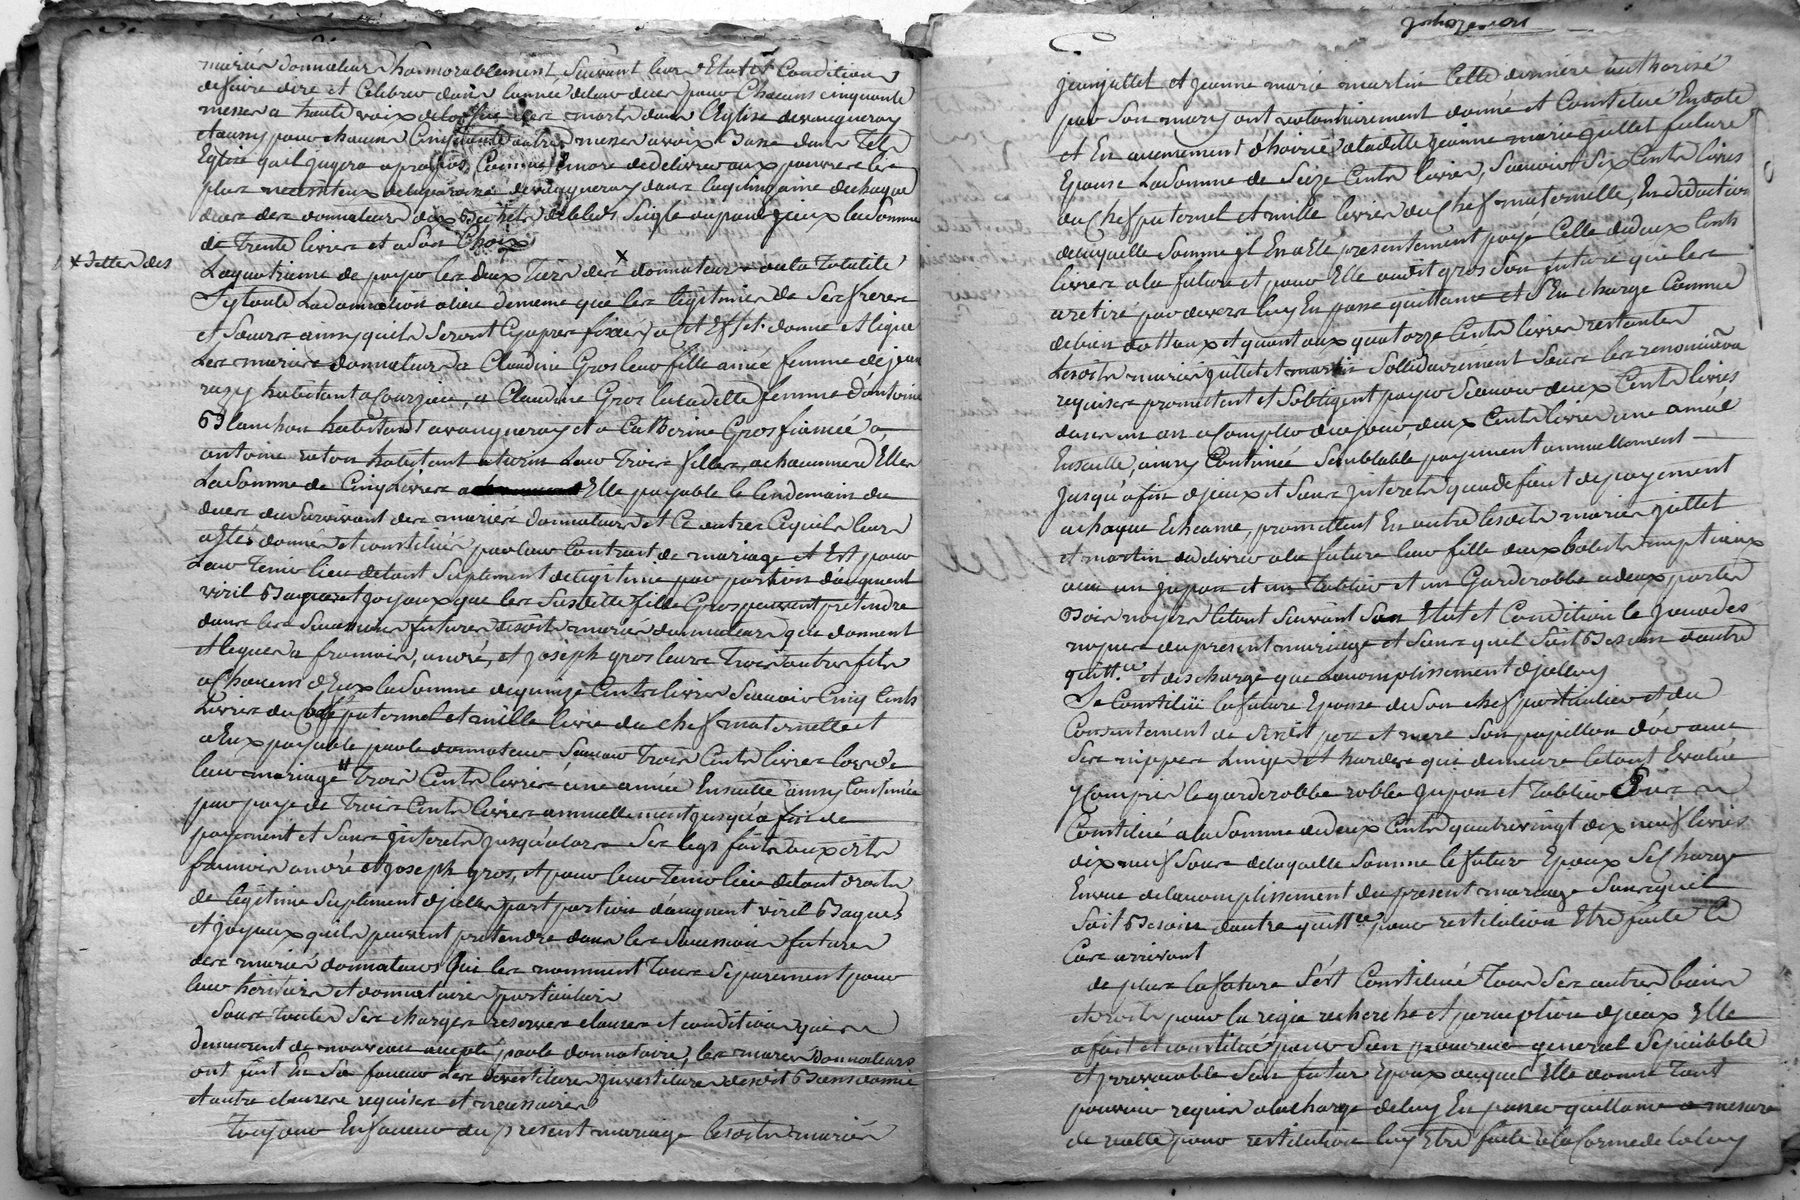 mariés donnateurs honnorablement, Suivant leur Etat et Condition
de faire dire et Celebrer dans lannée de leur deces pour Chacuns cinquante
messes a haute voix de loffice des morts dans lEglise de vaugneray
et aussy pour chacun Cinquante autres messes a voix Basse dans telle
Eglise quil jugera a propos, Comme Encore de delivrer aux pauvres les
plus necessiteux de la paroisse de vaugneray dans la quinzaine de chaque
deces des donnateurs dix Bichets de bled Seigle ou pour jceux la Somme
de Trente livres et a Son Choix
x dettes des
La quatrieme de payer les deux Tiers des x donnateurs ou la Totalité
Sy toute La donnation a lieu de meme que les legitimes de Ses freres
et Sœurs ainsy quils Seront Cy apres fixés, a cet Effet donne et legue
Les mariés donnateurs a Claudine Gros leur fille ainée femme de jean
razy habitant a Courzieu, a Claudine Gros la Cadette femme dantoine
Blanchon habitant a vaugneray et a Catherine Gros fiancée a
antoine raton habitant a Leur Trois filles, a chacunne dElles
La Somme de Cinq Livres a Elle payable le lendemain du
deces du Survivant des mariés donnateurs et Ce outre Ce quils leur
ont Etés donnés et constitués par leur Contrat de mariage et Est pour
Leur Tenir lieu de tout Suplement de legitime part portion daugment
viril Bagues et joyaux que les Susdittes filles Gros peuvent pretendre
dans les Successions futures desdits mariés donnateurs qui donnent
et leguent a francois, andré, et joseph gros leurs Trois autres fils
a Chacuns dEux la Somme de quinze Cents livres Scavoir Cinq Cents
Livres du chef paternel et mille livres du chef maternelle et
a Eux payable par le donnateur Scavoir Trois Cents livres lors de
leur mariage Trois Cents livres une année Ensuitte ainsy Continué
par paye de Trois Cents livres annuellement jusqua fin de
payement et Sans jnterets jusqualors Ses legs faits aux dits
francois andré et joseph gros, et pour leur Tenir lieu de tout droits
de legitime Suplement djcelles part portion daugment viril Bagues
et joyaux quils peuvent pretendre dans les Successions futures
des mariés donnateurs Qui les nomment Tous Separement pour
leur heritiers et donnataires particuliers
Sous Toutes Ses charges reserves clauses et conditions qui
demeurent de nouveau accepté par le donnataire, les mariés donnateurs
ont fait En Sa faveur Les devestitures jnvestitures desdit Biens donné
et autre clauses requises et necessaires
Toujours En faveur du present mariage lesdits mariés
jean jullet et jeanne marie martin Cette derniere authorisé
par Son mary ont volontairement donné et Constitué En dote
et En avencement dhoirie a laditte jeanne marie jullet future
Epouse La Somme de Seize Cents livres, Scavoir Six Cents livres
du Chef paternel et mille livres du Chef maternelle, En deduction
de laquelle Somme jl En a Eté presentement payé Celle de deux Cents
livres a la future et pour Elle audit gros Son futur qui les
a retiré par devers luy En passe quittance et SEn charge Comme
de bien dottaux et quant aux quatorze Cents livres restantes
Lesdits mariés jullet et martin Sollidairement Sous les renonciations
requises promettent et Sobligent payer Scavoir deux Cents livres
dans un an a Compter de ce jour, deux Cents livres une année
Ensuitte, ainsy Continué Semblable payement annuellement
jusqua fin djceux et Sans jnterets qua deffaut de payement
a chaque Echeance, promettent En outre lesdits mariés jullet
et martin de delivrer a la future leur fille deux habits nuptiaux
avec un jupon et un Tablier et un Garderobbe a deux portes
Bois noyer letout Suivant Son Etat et Condition le jour des
noçes du present mariage et Sans quil Soit Besoin dautre
quittce et descharge que Laccomplissement djcelluy
Se Constitüe la future Epouse de Son chef particulier et du
Consentement de Sesdit pere et mere Son papillon dor avec
Ses nippes Linges et hardes qui demeure letout Evalué
y Compris le garderobbe robbe jupon et Tablier
Constitué a la Somme de deux Cents quatrevingt dix neuf livres
dix neuf Sous de laquelle Somme le futur Epoux Se Charge
En vue de laccomplissement du present mariage Sans quil
Soit Besoin dautre quittce pour restitution Etre faite le
Cas arrivant
de plus la future Sest Constitué Tous Ses autres biens
et droits pour la regie recherche et perception djceux Elle
a fait et constitué pour Son procureur general Special
et jrrevocable Son futur Epoux auquel Elle donne Tout
pouvoir requis a la charge de luy En passer quittance a mesure
de recette pour restitution luy Etre faite a la forme de la loy